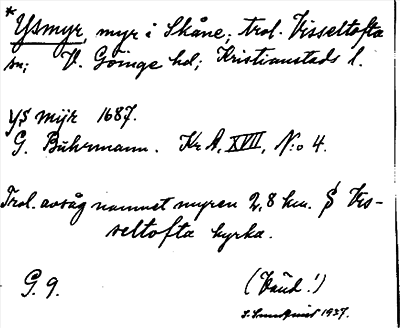 *Ysmyr, myr i Skåne; trol. Visseltofta
sn; V. Göinge hd; Kristianstads l.
ys mÿr 1687.
G. Buhrmann. Kr A, XVII, N:o 4.
Trol. avsåg namnet myren 2,8 km. S Vis-
seltofta kyrka.
G. 9. (Vänd!)
1937.